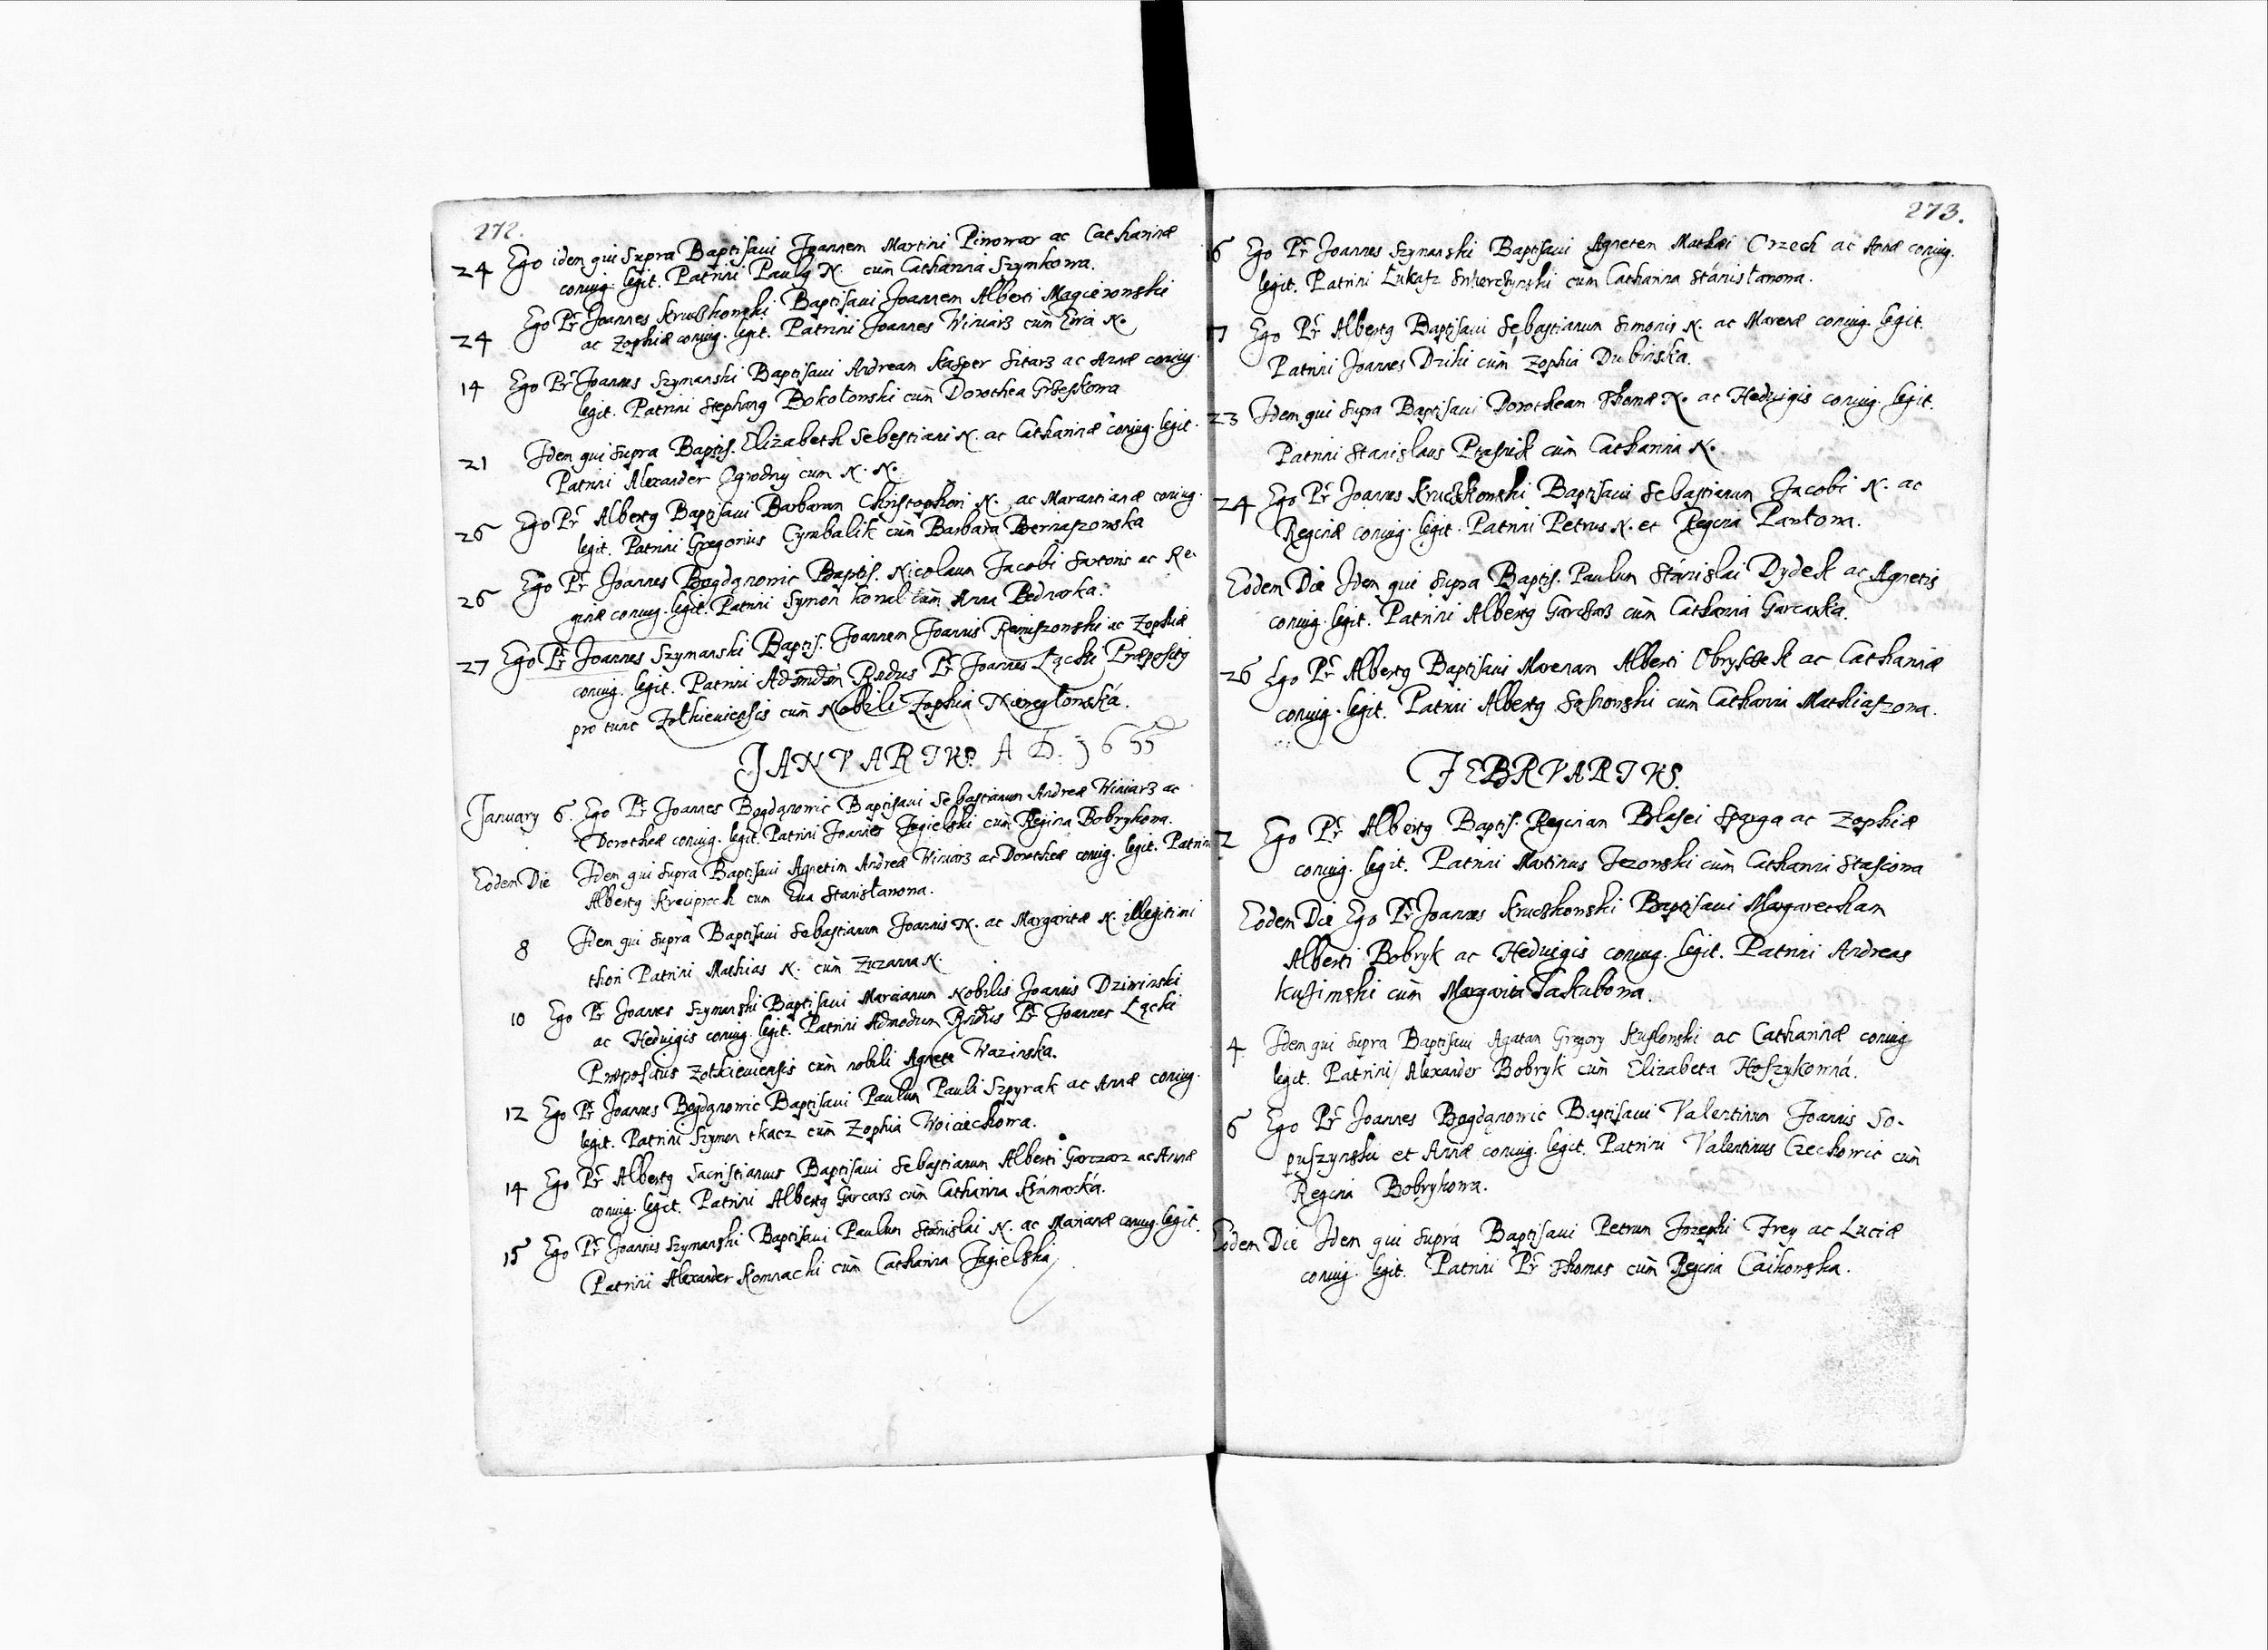 272.
24 Ego idem qui supra Baptisaui Joannem Martini Piwowar ac Catharinæ
coniug. legit. Patrini Paulg N. cum Catharina Szymkowa.
24 Ego Pr Joannes Kruczkowski Baptisaui Joannem Alberti Magierowski
ac Zophiæ coniug. legit. Patrini Joannes Winiarz cum Ewa N.
14 Ego Pr Joannes Szymanski Baptisaui Andream Kasper Sitarz ac Annæ coniug.
legit. Patrini Stephang Bokołowski cum Dorothea Grzeskowa
21 Idem qui supra Baptis. Elizabeth Sebestiani N. ac Catharinæ coniug. legit.
Patrini Alexander Ogrodny cum N. N.
26 Ego Pr Albertg Baptisaui Barbaram Christophori N. ac Marantianæ coniug.
legit. Patrini Gregorius Cymbalik cum Barbara Bernaszowska
26 Ego Pr Joannes Bogdanowic Baptis. Nicolaum Jacobi Sartoris ac Re-
ginæ coniug. legit. Patrini Symon Kowal cum Anna Bednarka.
27 Ego Pr Joannes Szymanski Baptis. Joannem Joannis Remiszowski ac Zophiæ
coniug. legit. Patrini Admodum Rndus Pr Joannes Łącki Præpositg
pro tunc Zolkieuiensis cum Nobili Zophia
JANVARIVS. A D. 1655
January 6. Ego Pr Joannes Bogdanowic Baptisaui Sebastianum Andreæ Winiarz ac
Dorotheæ coniug. legit. Patrini Joannes Jagielski cum Regina Bobrykowa.
Eodem Die Idem qui supra Baptisaui Agnetim Andreæ Winiarz ac Dorotheæ coniug. legit. Patrini
Albertg Kreciproch cum Eua Stanisławowa.
8 Idem qui supra Baptisaui Sebastianum Joannis N. ac Margaritæ N. illegitimi
thori Patrini Mathias N. cum Zuzanna N.
10 Ego Pr Joannes Szymanski Baptisaui Marcianum Nobilis Joannis Dziwinski
ac Hedvigis coniug. legit. Patrini Admodum Rndus Pr Joannes Łącki
Præpositus Zolkieuiensis cum nobili Agneta Wazinska.
12 Ego Pr Joannes Bogdanowic Baptisaui Paulum Pauli Szpyrak ac Annæ coniug.
legit. Patrini Szymon tkacz cum Zophia Woiciechowa.
14 Ego Pr Albertg Sacristianus Baptisaui Sebastianum Alberti Garczarz ac Annæ
coniug. legit. Patrini Albertg Garcarz cum Catharina Kramarka.
15 Ego Pr Joannis Szymanski Baptisaui Paulum Stanislai N. ac Marianæ coniug. legit.
Patrini Alexander Komnacki cum Catharina Jagielska
273.
16 Ego Pr Joannes Szymanski Baptisaui Agneten Mathæi Orzech ac Annæ coniug.
legit. Patrini Łukasz Swierczynski cum Catharina Stánisławowa.
17 Ego Pr Albertg Baptisaui Sebastianum Simonis N. ac Marenæ coniug. legit.
Patrini Joannes Dziki cum Zophia Dubinska.
23 Idem qui supra Baptisaui Dorotheam Thomæ N. ac Hedvigis coniug. legit.
Patrini Stanislaus Ptasnik cum Catharina N.
24 Ego Pr Joannes Kruczkowski Baptisaui Sebastianum Jacobi N. ac
Reginæ coniug. legit. Patrini Petrus N. et Regina Pawłowa.
Eodem Die Idem qui supra Baptis. Paulum Stánislai Dydek ac Agnetis
coniug. legit. Patrini Albertg Garczarz cum Catharina Garcarka.
26 Ego Pr Albertg Baptisaui Marenam Alberti Obryszek ac Catharinæ
coniug. legit. Patrini Albertg Sosnowski cum Catharina Mathiaszowa.
FEBRVARIVS.
2 Ego Pr Albertg Baptis. Reginam Blasei Sparga ac Zophiæ
coniug. legit. Patrini Martinus Jezowski cum Catharina Stasiowa
Eodem Die Ego Pr Joannes Kruczkowski Baptisaui Margaretham
Alberti Bobryk ac Hedvigis coniug. legit. Patrini Andreas
Kuzimski cum Margarita Jakubowa.
4 Idem qui supra Baptisaui Agatan Gregory Kuslowski ac Catharinæ coniug
legit. Patrini Alexander Bobryk cum Elizabeta Hoszykowná.
6 Ego Pr Joannes Bogdanowic Baptisaui Valentinum Joannis So-
puszynski et Annæ coniug. legit. Patrini Valentinus Czechowic cum
Regina Bobrykowa.
Eodem Die Idem qui suprá Baptisaui Petrum Jozephi Frey ac Luciæ
coniug. legit. Patrini Pr Thomas cum Regina Caikowska.